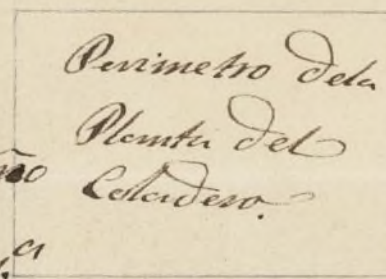 Perimetro dela
Planta del
Coladero.